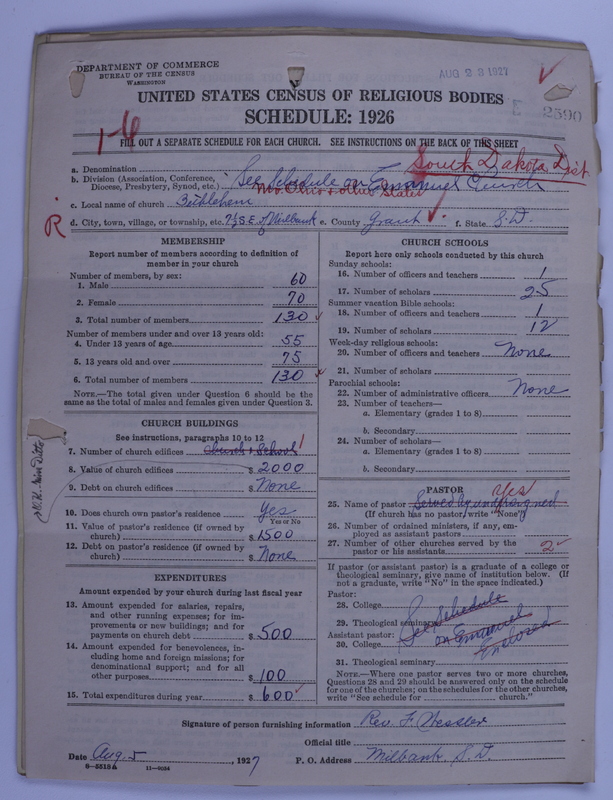 DEPARTMENT OF COMMERCE
BUREAU OF THE CENSUS
WASHINGTON
AUG 23 1927
UNITED STATES CENSUS OF RELIGIOUS BODIES
E 2590
SCHEDULE: 1926
1-6
FILL OUT A SEPARATE SCHEDULE FOR EACH CHURCH. SEE INSTRUCTIONS ON THE BACK OF THIS SHEET
South Dakota Dist
a. Denomination
b. Division (Association, Conference, Diocese, Presbytery, Synod, etc.) See Schedule on Emanuel Church
Mo. Ohio & other States
c. Local name of church Bethlehem
R
d. City, town, village, or township, etc. 7½ S.E. of Milbank e. County Grant f. State S.D.
MEMBERSHIP
Report number of members according to definition of member in your church
Number of members, by sex:
1. Male 60
2. Female 70
3. Total number of members 130
Number of members under and over 13 years old:
4. Under 13 years of age 55
5. 13 years old and over 75
6. Total number of members 130
NOTE.—The total given under Question 6 should be the same as the total of males and females given under Question 3.
CHURCH BUILDINGS
See instructions, paragraphs 10 to 12
7. Number of church edifices Church & School 1
8. Value of church edifices $ 2000
9. Debt on church edifices $ None
10. Does church own pastor's residence Yes
Yes or No
11. Value of pastor's residence (if owned by church) $ 1500
12. Debt on pastor's residence (if owned by church) $ None
EXPENDITURES
Amount expended by your church during last fiscal year
13. Amount expended for salaries, repairs, and other running expenses; for improvements or new buildings; and for payments on church debt $ 500
14. Amount expended for benevolences, including home and foreign missions; for denominational support; and for all other purposes $ 100
15. Total expenditures during year $ 600
CHURCH SCHOOLS
Report here only schools conducted by this church
Sunday schools:
16. Number of officers and teachers 1
17. Number of scholars 25
Summer vacation Bible schools:
18. Number of officers and teachers 1
19. Number of scholars 12
Week-day religious schools:
20. Number of officers and teachers None
21. Number of scholars
Parochial schools:
22. Number of administrative officers None
23. Number of teachers—
a. Elementary (grades 1 to 8)
b. Secondary
24. Number of scholars—
a. Elementary (grades 1 to 8)
b. Secondary
PASTOR
Yes
25. Name of pastor Served by undersigned
(If church has no pastor, write "None")
26. Number of ordained ministers, if any, employed as assistant pastors
27. Number of other churches served by the pastor or his assistants 2
If pastor (or assistant pastor) is a graduate of a college or theological seminary, give name of institution below. (If not a graduate, write "No" in the space indicated.)
Pastor:
28. College
29. Theological seminary See Schedule
Assistant pastor: on Emanuel
30. College Enclosed
31. Theological seminary
NOTE.—Where one pastor serves two or more churches, Questions 28 and 29 should be answered only on the schedule for one of the churches; on the schedules for the other churches, write "See schedule for church."
Signature of person furnishing information Rev. F. Wessler
Official title
Date Aug. 5, 1927 P. O. Address Milbank S.D.
8-5518A 11-9034